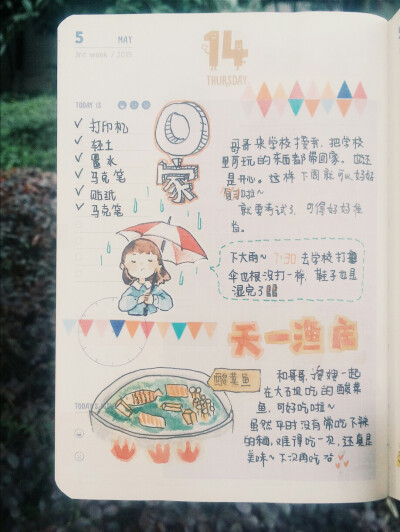 5 MAY
14
THURSDAY
TODAY IS
✓ 打印机
✓ 轻土
✓ 墨水
✓ 马克笔
✓ 贴纸
✓ 马克笔
回家
哥哥来学校接我，把学校
里可玩的东西都带回家。也还
是开心。这样下周就可以好好
复习啦~
就要考试了，可得好好担
当。
下大雨~ 7:30 去学校 打
伞也根没打一样，鞋子也是
湿完了
天一渔庙
酸菜鱼
和哥哥、嫂嫂一起
在大石坝吃的酸菜
鱼，可好吃啦~
虽然平时没有常吃下辣
的辅，难得吃一次，还真是
美味~ 下次再吃
TODAY'S